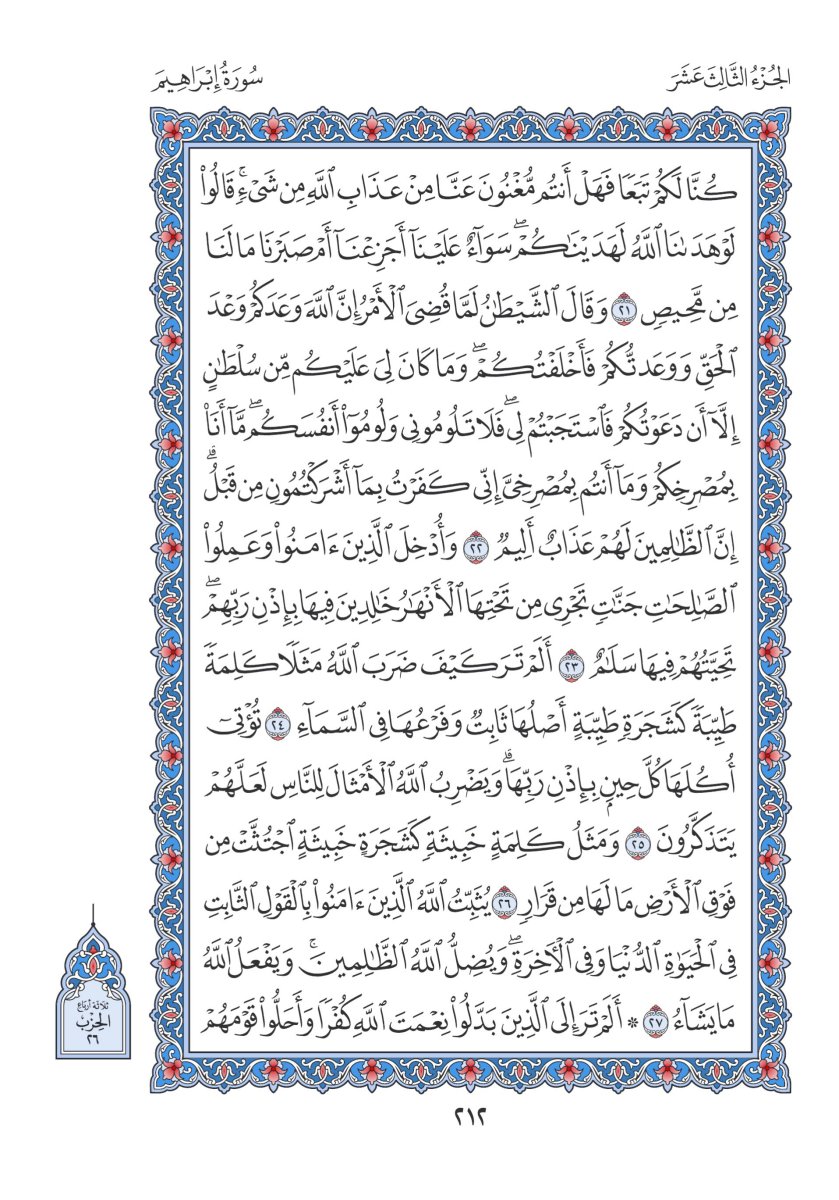 الجُزْءُ الثَّالِثَ عَشَرَ
سُورَةُ إِبْرَاهِيمَ
كُنَّا لَكُمْ تَبَعًا فَهَلْ أَنتُم مُّغْنُونَ عَنَّا مِنْ عَذَابِ ٱللَّهِ مِن شَىْءٍۚ قَالُوا۟
لَوْ هَدَىٰنَا ٱللَّهُ لَهَدَيْنَٰكُمْۖ سَوَآءٌ عَلَيْنَآ أَجَزِعْنَآ أَمْ صَبَرْنَا مَا لَنَا
مِن مَّحِيصٍ ٢١ وَقَالَ ٱلشَّيْطَٰنُ لَمَّا قُضِىَ ٱلْأَمْرُ إِنَّ ٱللَّهَ وَعَدَكُمْ وَعْدَ
ٱلْحَقِّ وَوَعَدتُّكُمْ فَأَخْلَفْتُكُمْۖ وَمَا كَانَ لِىَ عَلَيْكُم مِّن سُلْطَٰنٍ
إِلَّآ أَن دَعَوْتُكُمْ فَٱسْتَجَبْتُمْ لِىۖ فَلَا تَلُومُونِى وَلُومُوٓا۟ أَنفُسَكُمۖ مَّآ أَنَا۠
بِمُصْرِخِكُمْ وَمَآ أَنتُم بِمُصْرِخِىَّ إِنِّى كَفَرْتُ بِمَآ أَشْرَكْتُمُونِ مِن قَبْلُۗ
إِنَّ ٱلظَّٰلِمِينَ لَهُمْ عَذَابٌ أَلِيمٌ ٢٢ وَأُدْخِلَ ٱلَّذِينَ ءَامَنُوا۟ وَعَمِلُوا۟
ٱلصَّٰلِحَٰتِ جَنَّٰتٍ تَجْرِى مِن تَحْتِهَا ٱلْأَنْهَٰرُ خَٰلِدِينَ فِيهَا بِإِذْنِ رَبِّهِمْۖ
تَحِيَّتُهُمْ فِيهَا سَلَٰمٌ ٢٣ أَلَمْ تَرَ كَيْفَ ضَرَبَ ٱللَّهُ مَثَلًا كَلِمَةً
طَيِّبَةً كَشَجَرَةٍ طَيِّبَةٍ أَصْلُهَا ثَابِتٌ وَفَرْعُهَا فِى ٱلسَّمَآءِ ٢٤ تُؤْتِىٓ
أُكُلَهَا كُلَّ حِينٍۭ بِإِذْنِ رَبِّهَاۗ وَيَضْرِبُ ٱللَّهُ ٱلْأَمْثَالَ لِلنَّاسِ لَعَلَّهُمْ
يَتَذَكَّرُونَ ٢٥ وَمَثَلُ كَلِمَةٍ خَبِيثَةٍ كَشَجَرَةٍ خَبِيثَةٍ ٱجْتُثَّتْ مِن
فَوْقِ ٱلْأَرْضِ مَا لَهَا مِن قَرَارٍ ٢٦ يُثَبِّتُ ٱللَّهُ ٱلَّذِينَ ءَامَنُوا۟ بِٱلْقَوْلِ ٱلثَّابِتِ
فِى ٱلْحَيَوٰةِ ٱلدُّنْيَا وَفِى ٱلْأَخِرَةِۖ وَيُضِلُّ ٱللَّهُ ٱلظَّٰلِمِينَۚ وَيَفْعَلُ ٱللَّهُ
مَا يَشَآءُ ٢٧ ۞ أَلَمْ تَرَ إِلَى ٱلَّذِينَ بَدَّلُوا۟ نِعْمَتَ ٱللَّهِ كُفْرًا وَأَحَلُّوا۟ قَوْمَهُمْ
ثلاثة أرباع
الحِزْبِ
٢٦
٢١٢